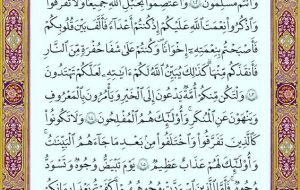 وَأَنتُم مُّسْلِمُونَ ١٠٢ وَٱعْتَصِمُوا۟ بِحَبْلِ ٱللَّهِ جَمِيعًا وَلَا تَفَرَّقُوا۟
وَٱذْكُرُوا۟ نِعْمَتَ ٱللَّهِ عَلَيْكُمْ إِذْ كُنتُمْ أَعْدَآءً فَأَلَّفَ بَيْنَ قُلُوبِكُمْ
فَأَصْبَحْتُم بِنِعْمَتِهِۦٓ إِخْوَٰنًا وَكُنتُمْ عَلَىٰ شَفَا حُفْرَةٍ مِّنَ ٱلنَّارِ
فَأَنقَذَكُم مِّنْهَا ۗ كَذَٰلِكَ يُبَيِّنُ ٱللَّهُ لَكُمْ ءَايَٰتِهِۦ لَعَلَّكُمْ تَهْتَدُونَ
١٠٣ وَلْتَكُن مِّنكُمْ أُمَّةٌ يَدْعُونَ إِلَى ٱلْخَيْرِ وَيَأْمُرُونَ بِٱلْمَعْرُوفِ
وَيَنْهَوْنَ عَنِ ٱلْمُنكَرِ ۚ وَأُو۟لَٰٓئِكَ هُمُ ٱلْمُفْلِحُونَ ١٠٤ وَلَا تَكُونُوا۟
كَٱلَّذِينَ تَفَرَّقُوا۟ وَٱخْتَلَفُوا۟ مِنۢ بَعْدِ مَا جَآءَهُمُ ٱلْبَيِّنَٰتُ ۚ
وَأُو۟لَٰٓئِكَ لَهُمْ عَذَابٌ عَظِيمٌ ١٠٥ يَوْمَ تَبْيَضُّ وُجُوهٌ وَتَسْوَدُّ
وُجُوهٌ ۚ فَأَمَّا ٱلَّذِينَ ٱسْوَدَّتْ وُجُوهُهُمْ أَكَفَرْتُم بَعْدَ إِيمَٰنِكُمْ